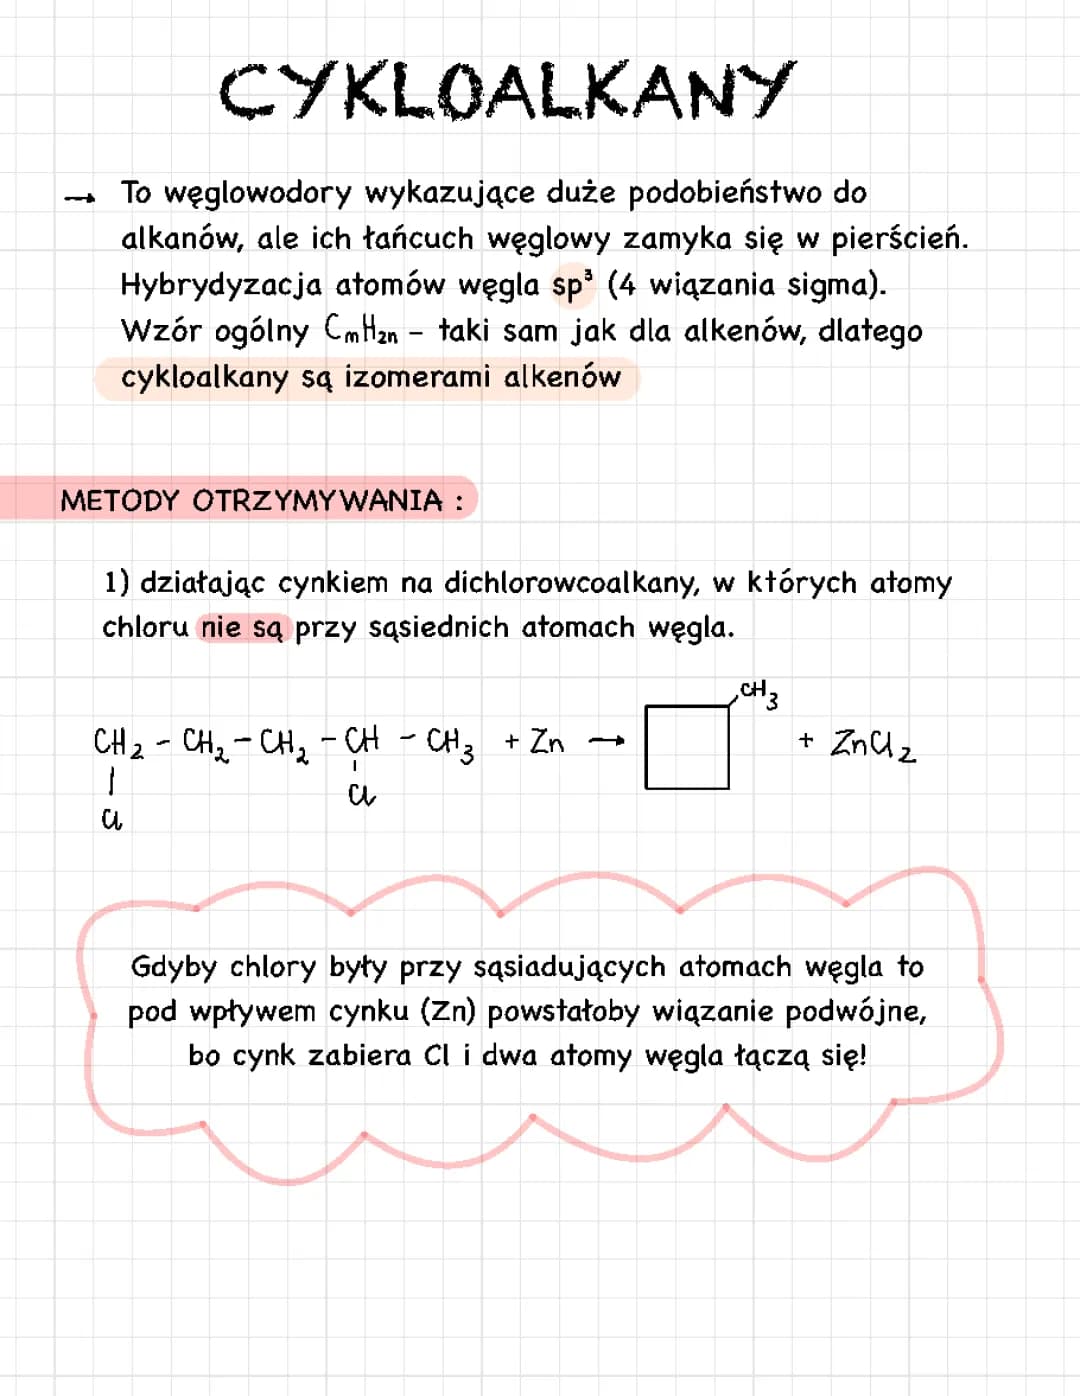 CYKLOALKANY
→ To węglowodory wykazujące duże podobieństwo do
alkanów, ale ich łańcuch węglowy zamyka się w pierścień.
Hybrydyzacja atomów węgla sp³ (4 wiązania sigma).
Wzór ogólny CmH2n - taki sam jak dla alkenów, dlatego
cykloalkany są izomerami alkenów
METODY OTRZYMYWANIA :
1) działając cynkiem na dichlorowcoalkany, w których atomy
chloru nie są przy sąsiednich atomach węgla.
CH3
CH2 - CH2 - CH2 - CH - CH3 + Zn → + ZnCl2
Cl Cl
Gdyby chlory były przy sąsiadujących atomach węgla to
pod wpływem cynku (Zn) powstałoby wiązanie podwójne,
bo cynk zabiera Cl i dwa atomy węgla łączą się!